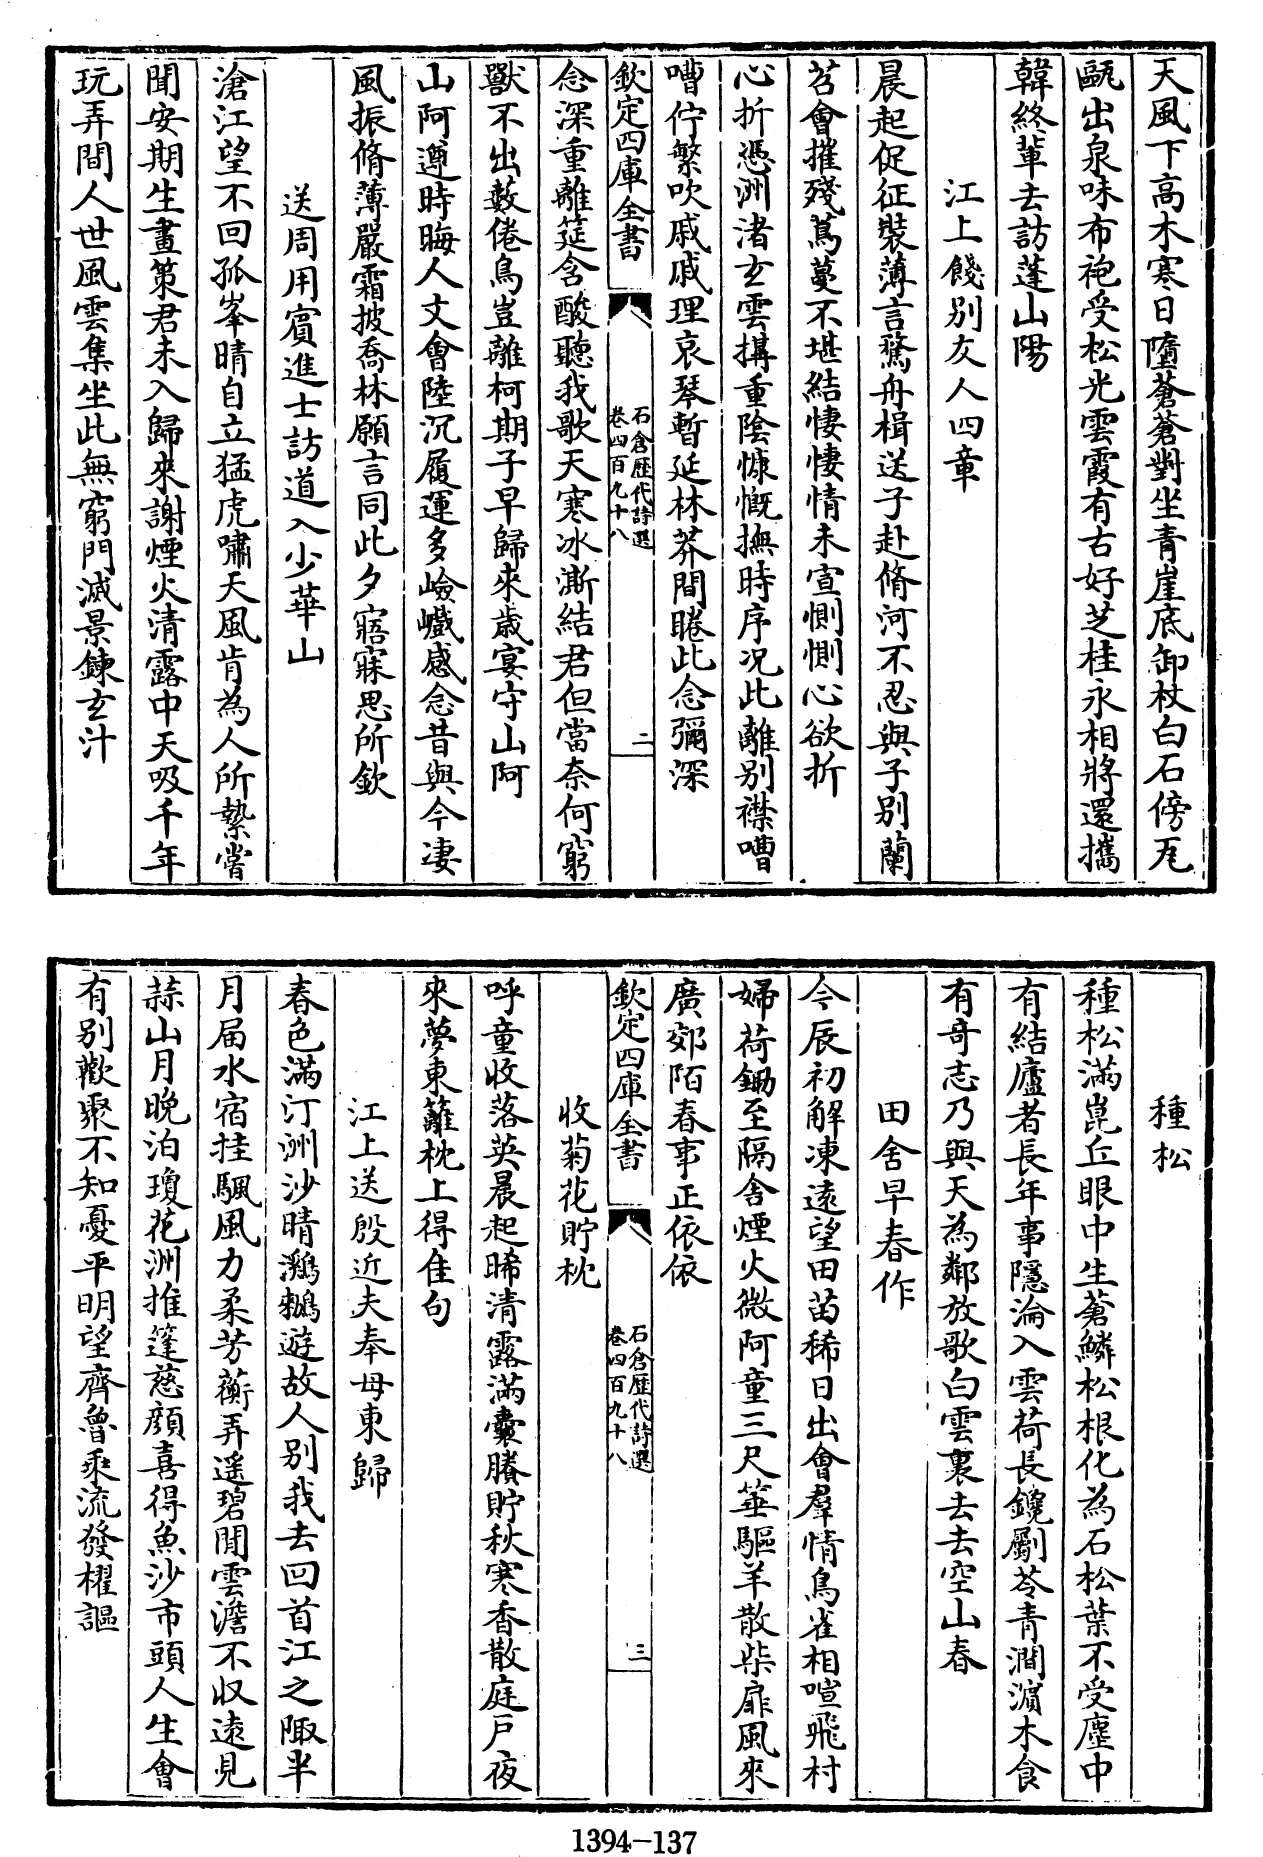 天風下高木寒日墮蒼蒼對坐青崖底卸杖白石傍瓦
甌出泉味布袍受松光雲霞有古好芝桂永相將還攜
韓終輩去訪蓬山陽
江上餞别友人四章
晨起促征裝薄言驁舟楫送子赴脩河不忍與子别蘭
苕會摧殘蔦蔓不堪結悽悽情未宣惻惻心欲折
心折憑洲渚玄雲搆重陰慷慨撫時序况此離别襟嘈
嘈佇繁吹戚戚理哀琴暫延林莽間睠此念彌深
欽定四庫全書
石倉歷代詩選
卷四百九十八
二
念深重離筵含酸聽我歌天寒冰澌結君但當奈何窮
獸不出藪倦鳥豈離柯期子早歸來歲宴守山阿
山阿遵時晦人文會陸沉履運多嶮巇感念昔與今凄
風振脩薄嚴霜披喬林願言同此夕寤寐思所欽
送周用賓進士訪道入少華山
滄江望不回孤峯晴自立猛虎嘯天風肯為人所縶嘗
聞安期生畫策君未入歸來謝煙火清露中天吸千年
玩弄間人世風雲集坐此無窮門滅景鍊玄汁
種松
種松滿崑丘眼中生蒼鱗松根化為石松葉不受塵中
有結廬者長年事隱淪入雲荷長鑱劚苓青澗濵木食
有奇志乃與天為鄰放歌白雲裏去去空山春
田舍早春作
今辰初解凍遠望田苗稀日出會羣情鳥雀相喧飛村
婦荷鋤至隔舍煙火微阿童三尺箠驅羊散柴扉風來
廣郊陌春事正依依
欽定四庫全書
石倉歷代詩選
卷四百九十八
三
收菊花貯枕
呼童收落英晨起晞清露滿囊賸貯秋寒香散庭户夜
來夢東籬枕上得佳句
江上送殷近夫奉母東歸
春色滿汀洲沙晴鸂鶒遊故人别我去回首江之陬半
月届水宿挂颿風力柔芳蘅弄遥碧閒雲澹不收遠見
蒜山月晚泊瓊花洲推篷慈顔喜得魚沙市頭人生會
有别歡聚不知憂平明望齊魯乘流發櫂謳
1394-137